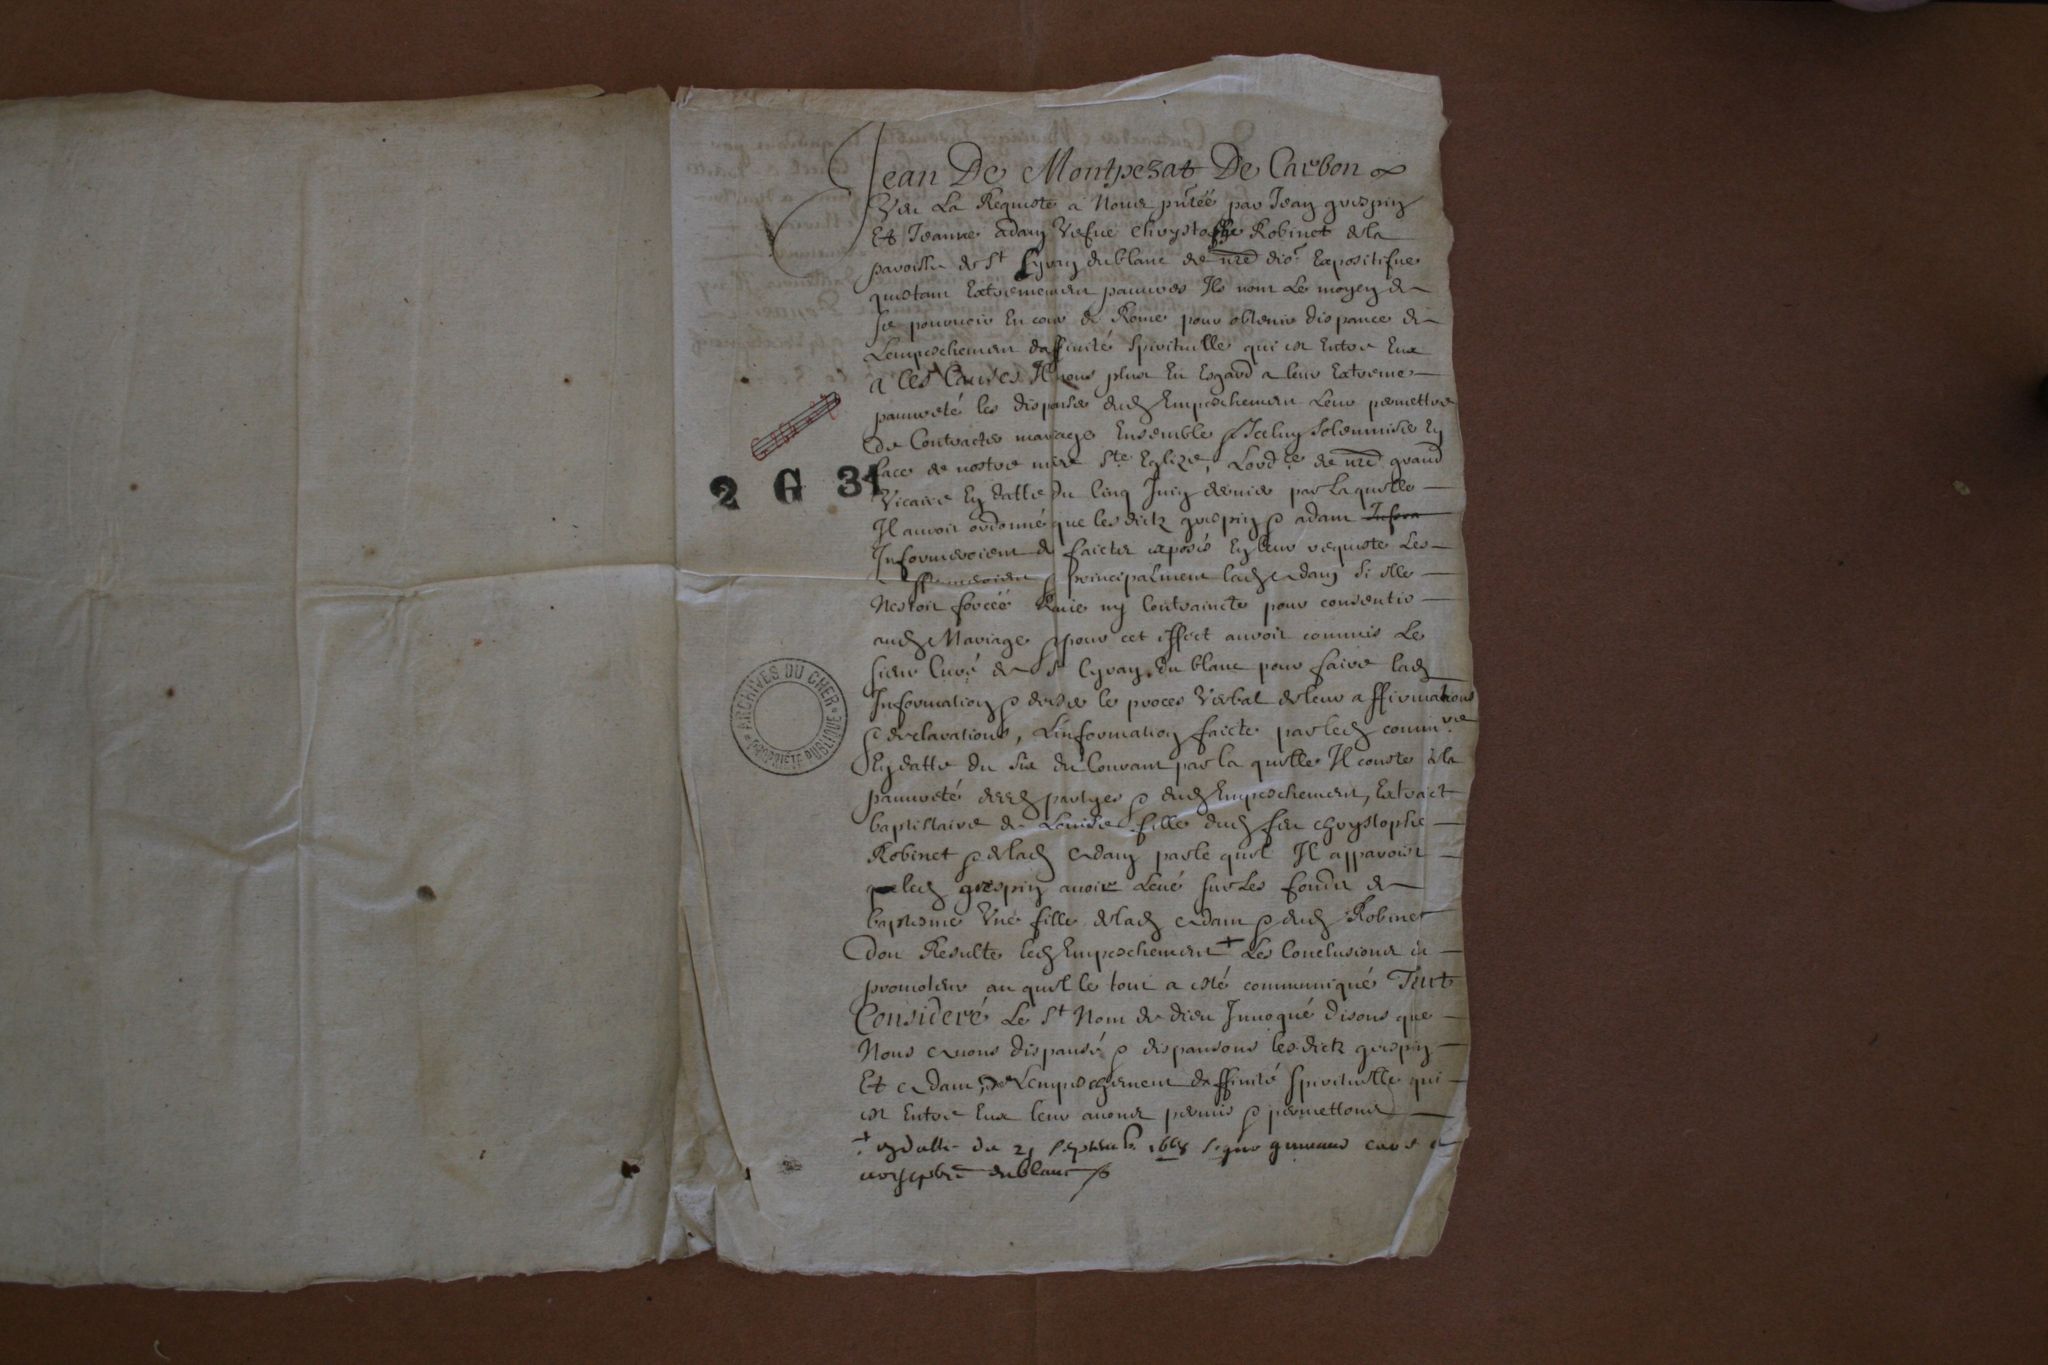 Jean De Montpezat De Carbon
Veu La Requeste a Nous pntée par Jean grespin
Et Jeanne adam Vefue Chrystophe Robinet de la
paroisse de St Cyran du blanc de nre dio: Expositifue
questant Extremement pauures Ils nont Le moyen de
se pouruoir En cour de Rome pour obtenir dispance de
Lempeschement daffinité Spirituelle qui est Entre Eux
a Ces Causes Il nous plust En Esgard a leur Extreme
pauureté les dispanser dud Empeschement Leur permettre
de Contracter mariage Ensemble & Iceluy Solemniser En
face de nostre mere Ste Eglize, Lord.ce de nre grand
Vicaire En datte du Cinq Juin dernier par Laquelle
Il auroit ordonné que les dictz grespin & adam Infora
Informeroient de faictz exposés En leur requeste Les
affirmeroient & principalment lad Adam si elle
Nestoit forcéé Rauie ny Contraincte pour consentir
aud Mariage & pour cet effect auroit commis Le
sieur Curé de St Cyran du blanc pour faire lad
Information & dresser le proces Verbal de leur affirmations
& declarations, Linformation faicte par led comm.re
En datte du Six du Courant par la quelle Il conste de la
pauureté desd partyes & dud Empeschement, Extraict
baptistaire de Louise fille dud feu Chrystophe
Robinet & de lad Adam par le quel Il apparoist
que led grespin auoir Leué sur Les fondz de
baptesme Vne fille de lad Adam & dud Robinet
dou Resulte led Empeschement + Les Conclusions du
promoteur au quel le tout a esté communiqué Tout
Consideré Le St Nom de Dieu Inuoqué disons que
Nous Auons dispansé & dispansons les dictz grespin
Et Adam, de Lempeschement daffinité spirituelle qui
est Entre Eux leur auons permis & permettons
+ en datte du 21 septemb. 1668 signe curé &
du blanc
2 G 31
ARCHIVES DU CHER
PROPRIETE PUBLIQUE